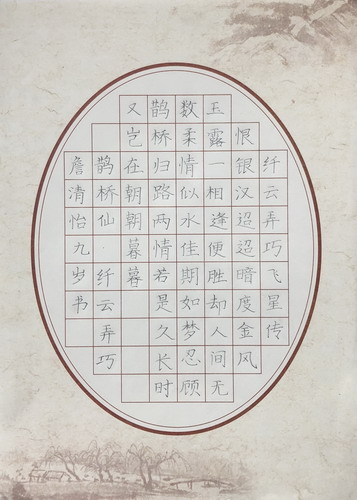 纤云弄巧飞星传
恨银汉迢迢暗度金风
玉露一相逢便胜却人间无
数柔情似水佳期如梦忍顾
鹊桥归路两情若是久长时
又岂在朝朝暮暮
鹊桥仙·纤云弄巧
詹清怡九岁书